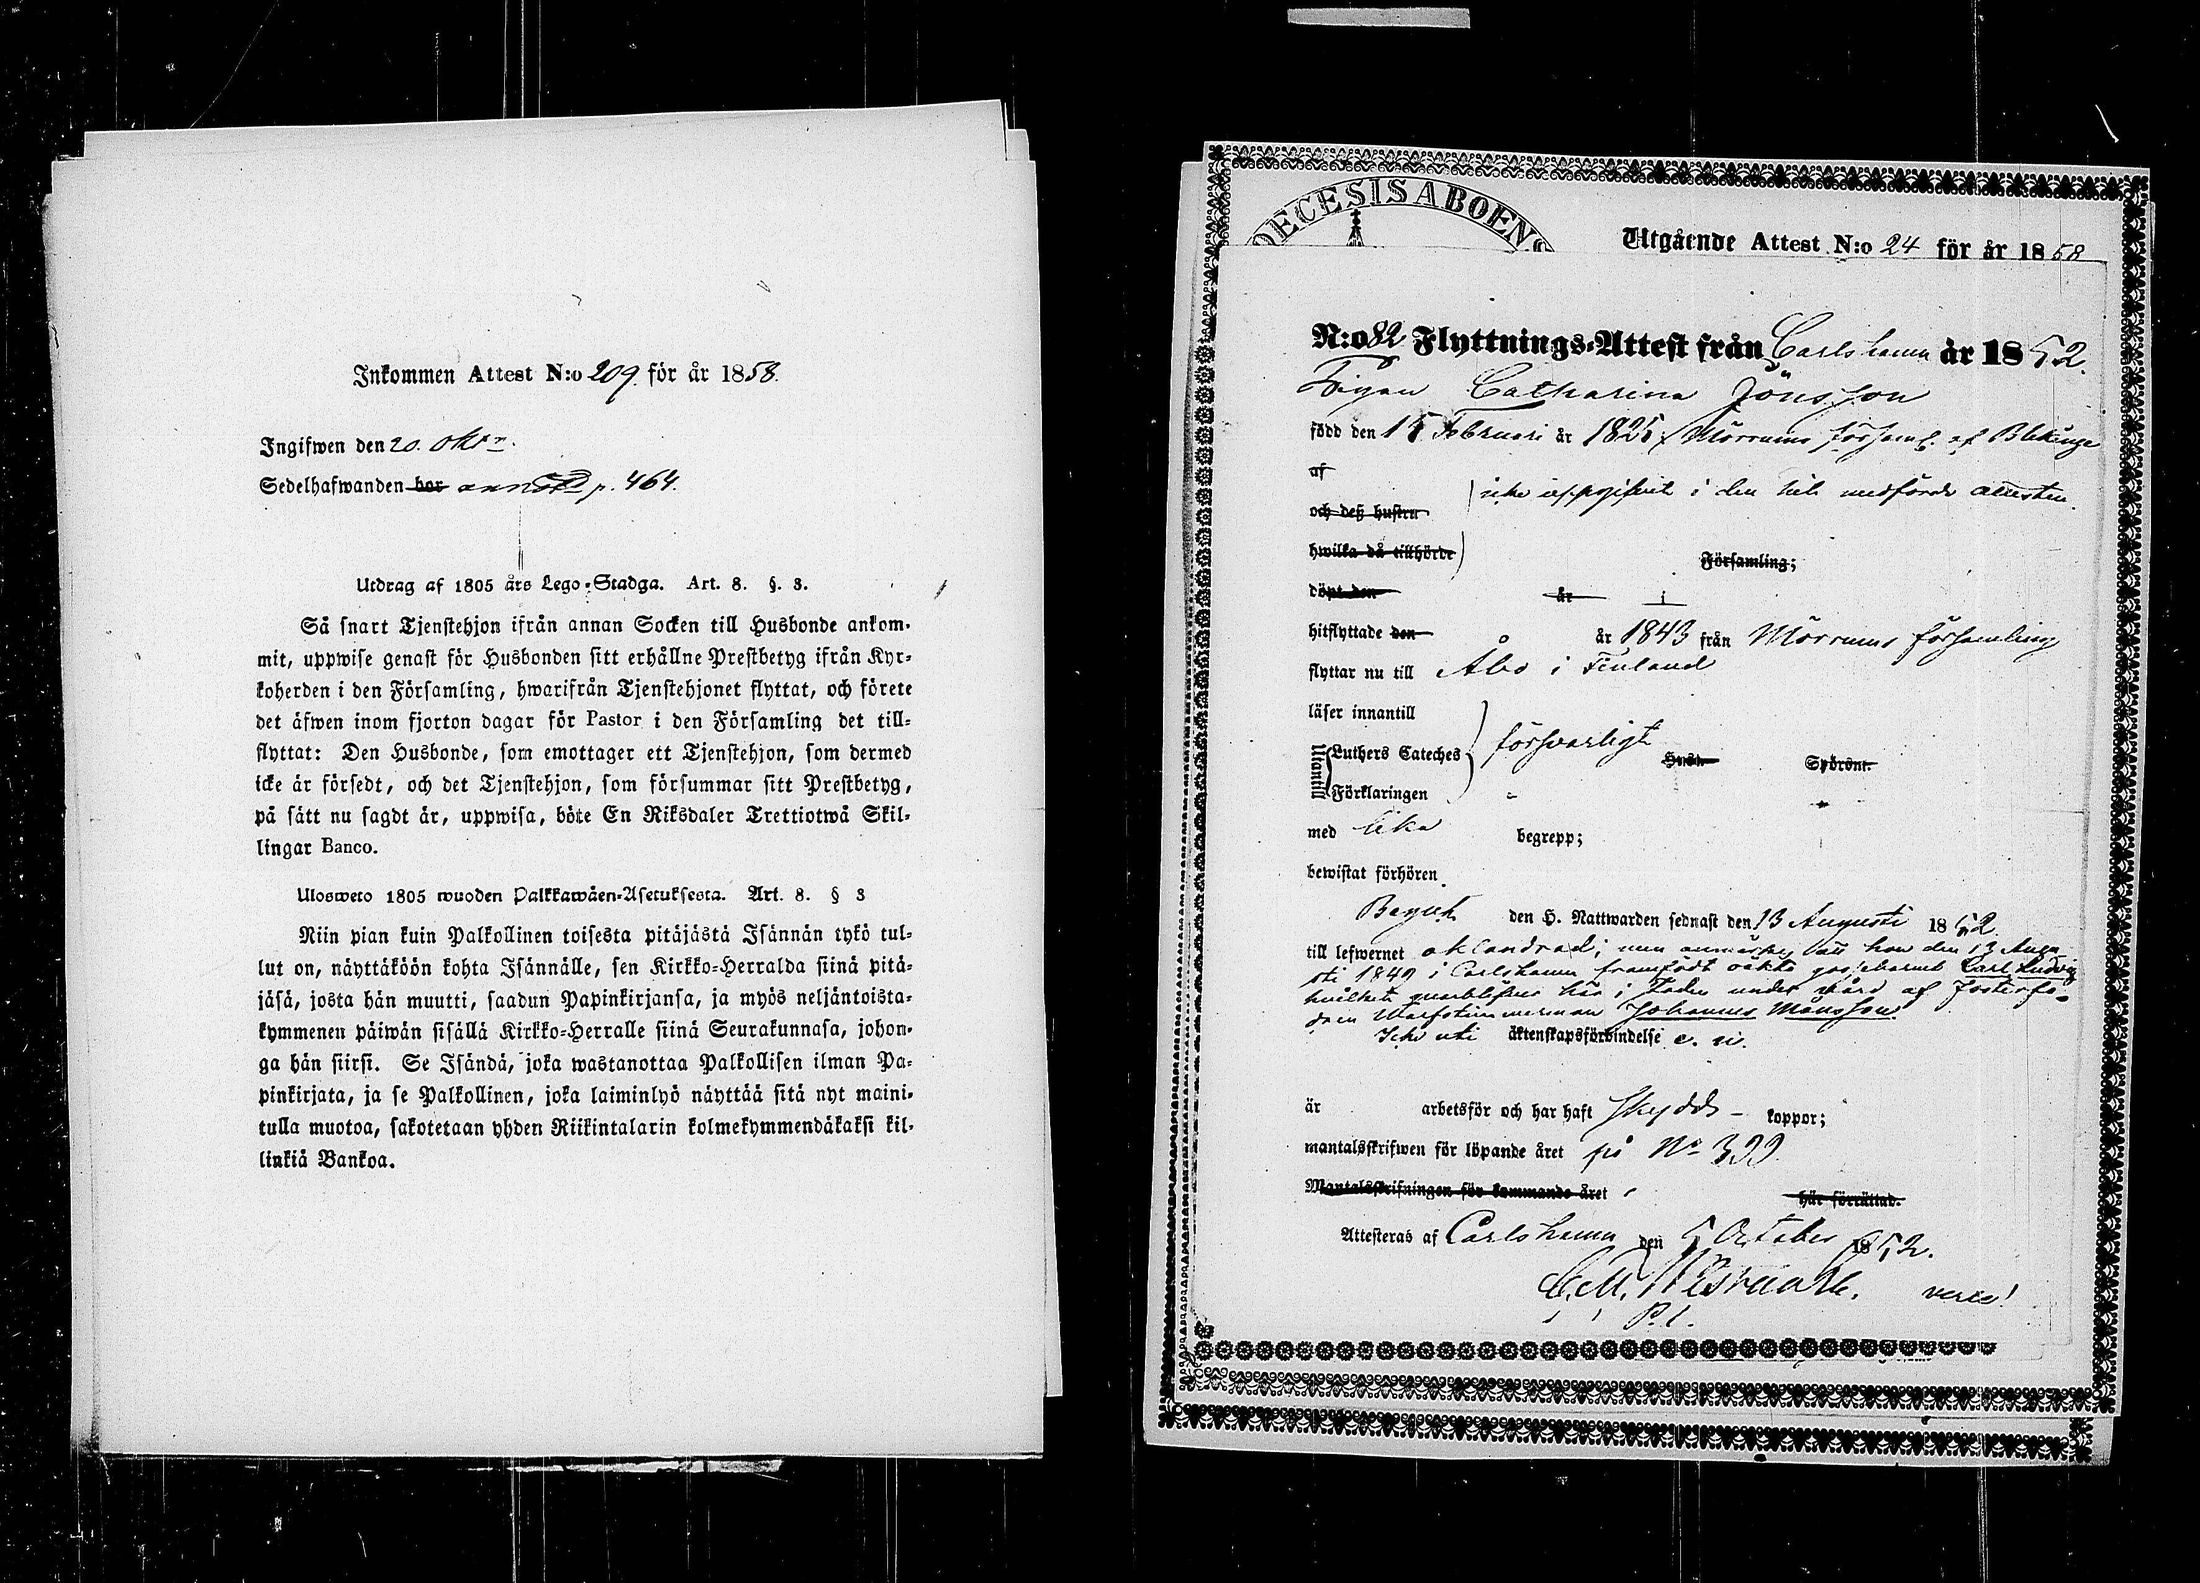 Inkommen Attest N:o 209. för år 1858.
Ingifwen den 20. Oktr.
Sedelhafwanden bor annotd p. 464.
Utdrag af 1805 års Lego-Stadga. Art. 8. §. 3.
Så snart Tjenstehjon ifrån annan Socken till Husbonde ankom-
mit, uppwise genast för Husbonden sitt erhållne Prestbetyg ifrån Kyr-
koherden i den Församling, hwarifrån Tjenstehjonet flyttat, och förete
det äfwen inom fjorton dagar för Pastor i den Församling det till-
flyttat: Den Husbonde, som emottager ett Tjenstehjon, som dermed
icke är försedt, och det Tjenstehjon, som försummar sitt Prestbetyg,
på sätt nu sagdt är, uppwisa, böte En Riksdaler Trettiotwå Skil-
lingar Banco.
Ulosweto 1805 wuoden Palkkawäen-Asetuksesta. Art. 8. § 3
Niin pian kuin Palkollinen toisesta pitäjästä Isännän tykö tul-
lut on, näyttäköön kohta Isännälle, sen Kirkko-Herralda siinä pitä-
jäsä, josta hän muutti, saadun Papinkirjansa, ja myös neljäntoista-
kymmenen päiwän sisällä Kirkko-Herralle siinä Seurakunnasa, johon-
ga hän siirsi. Se Isändä, joka wastanottaa Palkollisen ilman Pa-
pinkirjata, ja se Palkollinen, joka laiminlyö näyttää sitä nyt maini-
tulla muotoa, sakotetaan yhden Riikintalarin kolmekymmendäkaksi kil-
linkiä Bankoa.
DECESIS ABOENS
Utgående Attest N:o 24 för år 1858
N:o 82 Flyttnings-Attest från Carlshamn år 1852.
Pigan Catharina Jönsson
född den 15 Februari år 1825 i Mörrums församl. af Blekinge
af
icke uppgifvet i den hit medförde attesten
och deß hustru
hwilka då tillhörde Församling;
döpt den år i
hitflyttade den år 1843 från Mörrums församling
flyttar nu till Åbo i Finland
läser innantill
utantill Luthers Cateches försvarligt Hust. Spörsm.
Förklaringen
med lika begrepp;
bewistat förhören
Begick den H. Nattwarden sednast den 13 Augusti 1852
till lefwernet oklandrad; men anmärkes att hon den 13 Augu
sti 1849 i Carlshamn framfödt oäkta gossebarnet Carl Ludvig
hvilket qvarblifver här i staden under vård af fosterfa-
dren Warfstimmerman Johannes Månsson
Icke uti äktenskapsförbindelse
är arbetsför och har haft skydds- koppor;
mantalsskrifwen för löpande året på No 399
Mantalsskrifningen för kommande året här förrättad.
Attesteras af Carlshamn den 5 October 1852.
verte!
P. l.